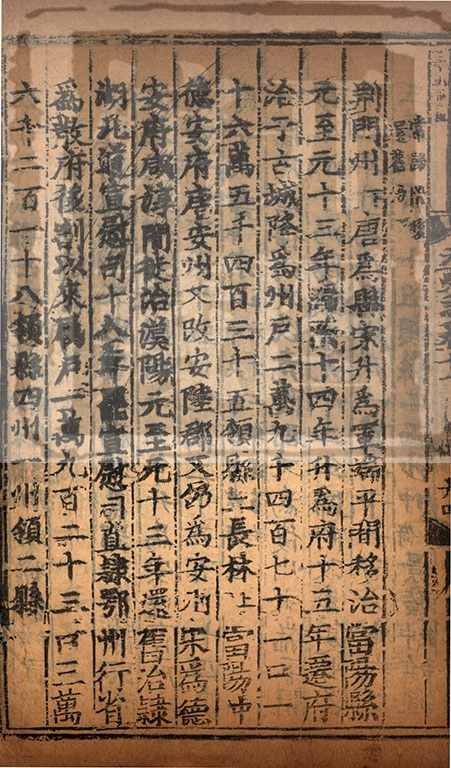 荆門州下唐為縣宋升為軍端平間移治當陽縣
元至元十三年歸附十四年升為府十五年遷府
治于古城降為州戶二萬九千四百七十一口一
十六萬五千四百三十五領縣二長林上當陽中
德安府唐安州又改安陸郡又仍為安州宋為德
安府咸淳間徙治漢陽元至元十三年還舊治隸
湖北道宣慰司十八年罷宣慰司直隸鄂州行省
為散府後割以來屬戶一萬九百二十三口三萬
六千二百一十八領縣四州一州領二縣